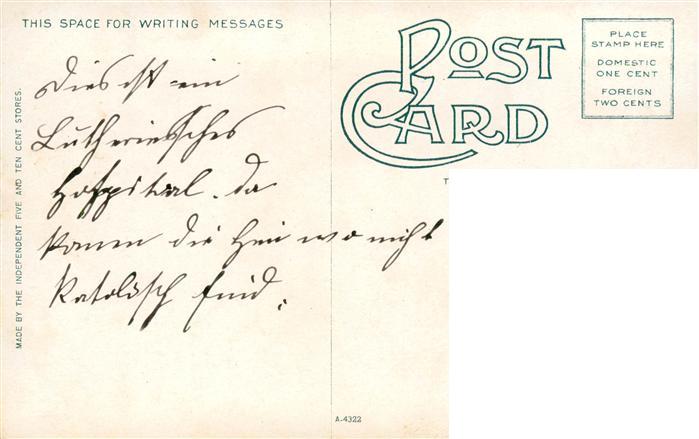 THIS SPACE FOR WRITING MESSAGES
POST
CARD
PLACE
STAMP HERE
DOMESTIC
ONE CENT
FOREIGN
TWO CENTS
MADE BY THE INDEPENDENT FIVE AND TEN CENT STORES.
Dies ist ein
Lutherisches
Hospital. da
komen die hin wo nicht
Katolisch sind.
T
A-4322